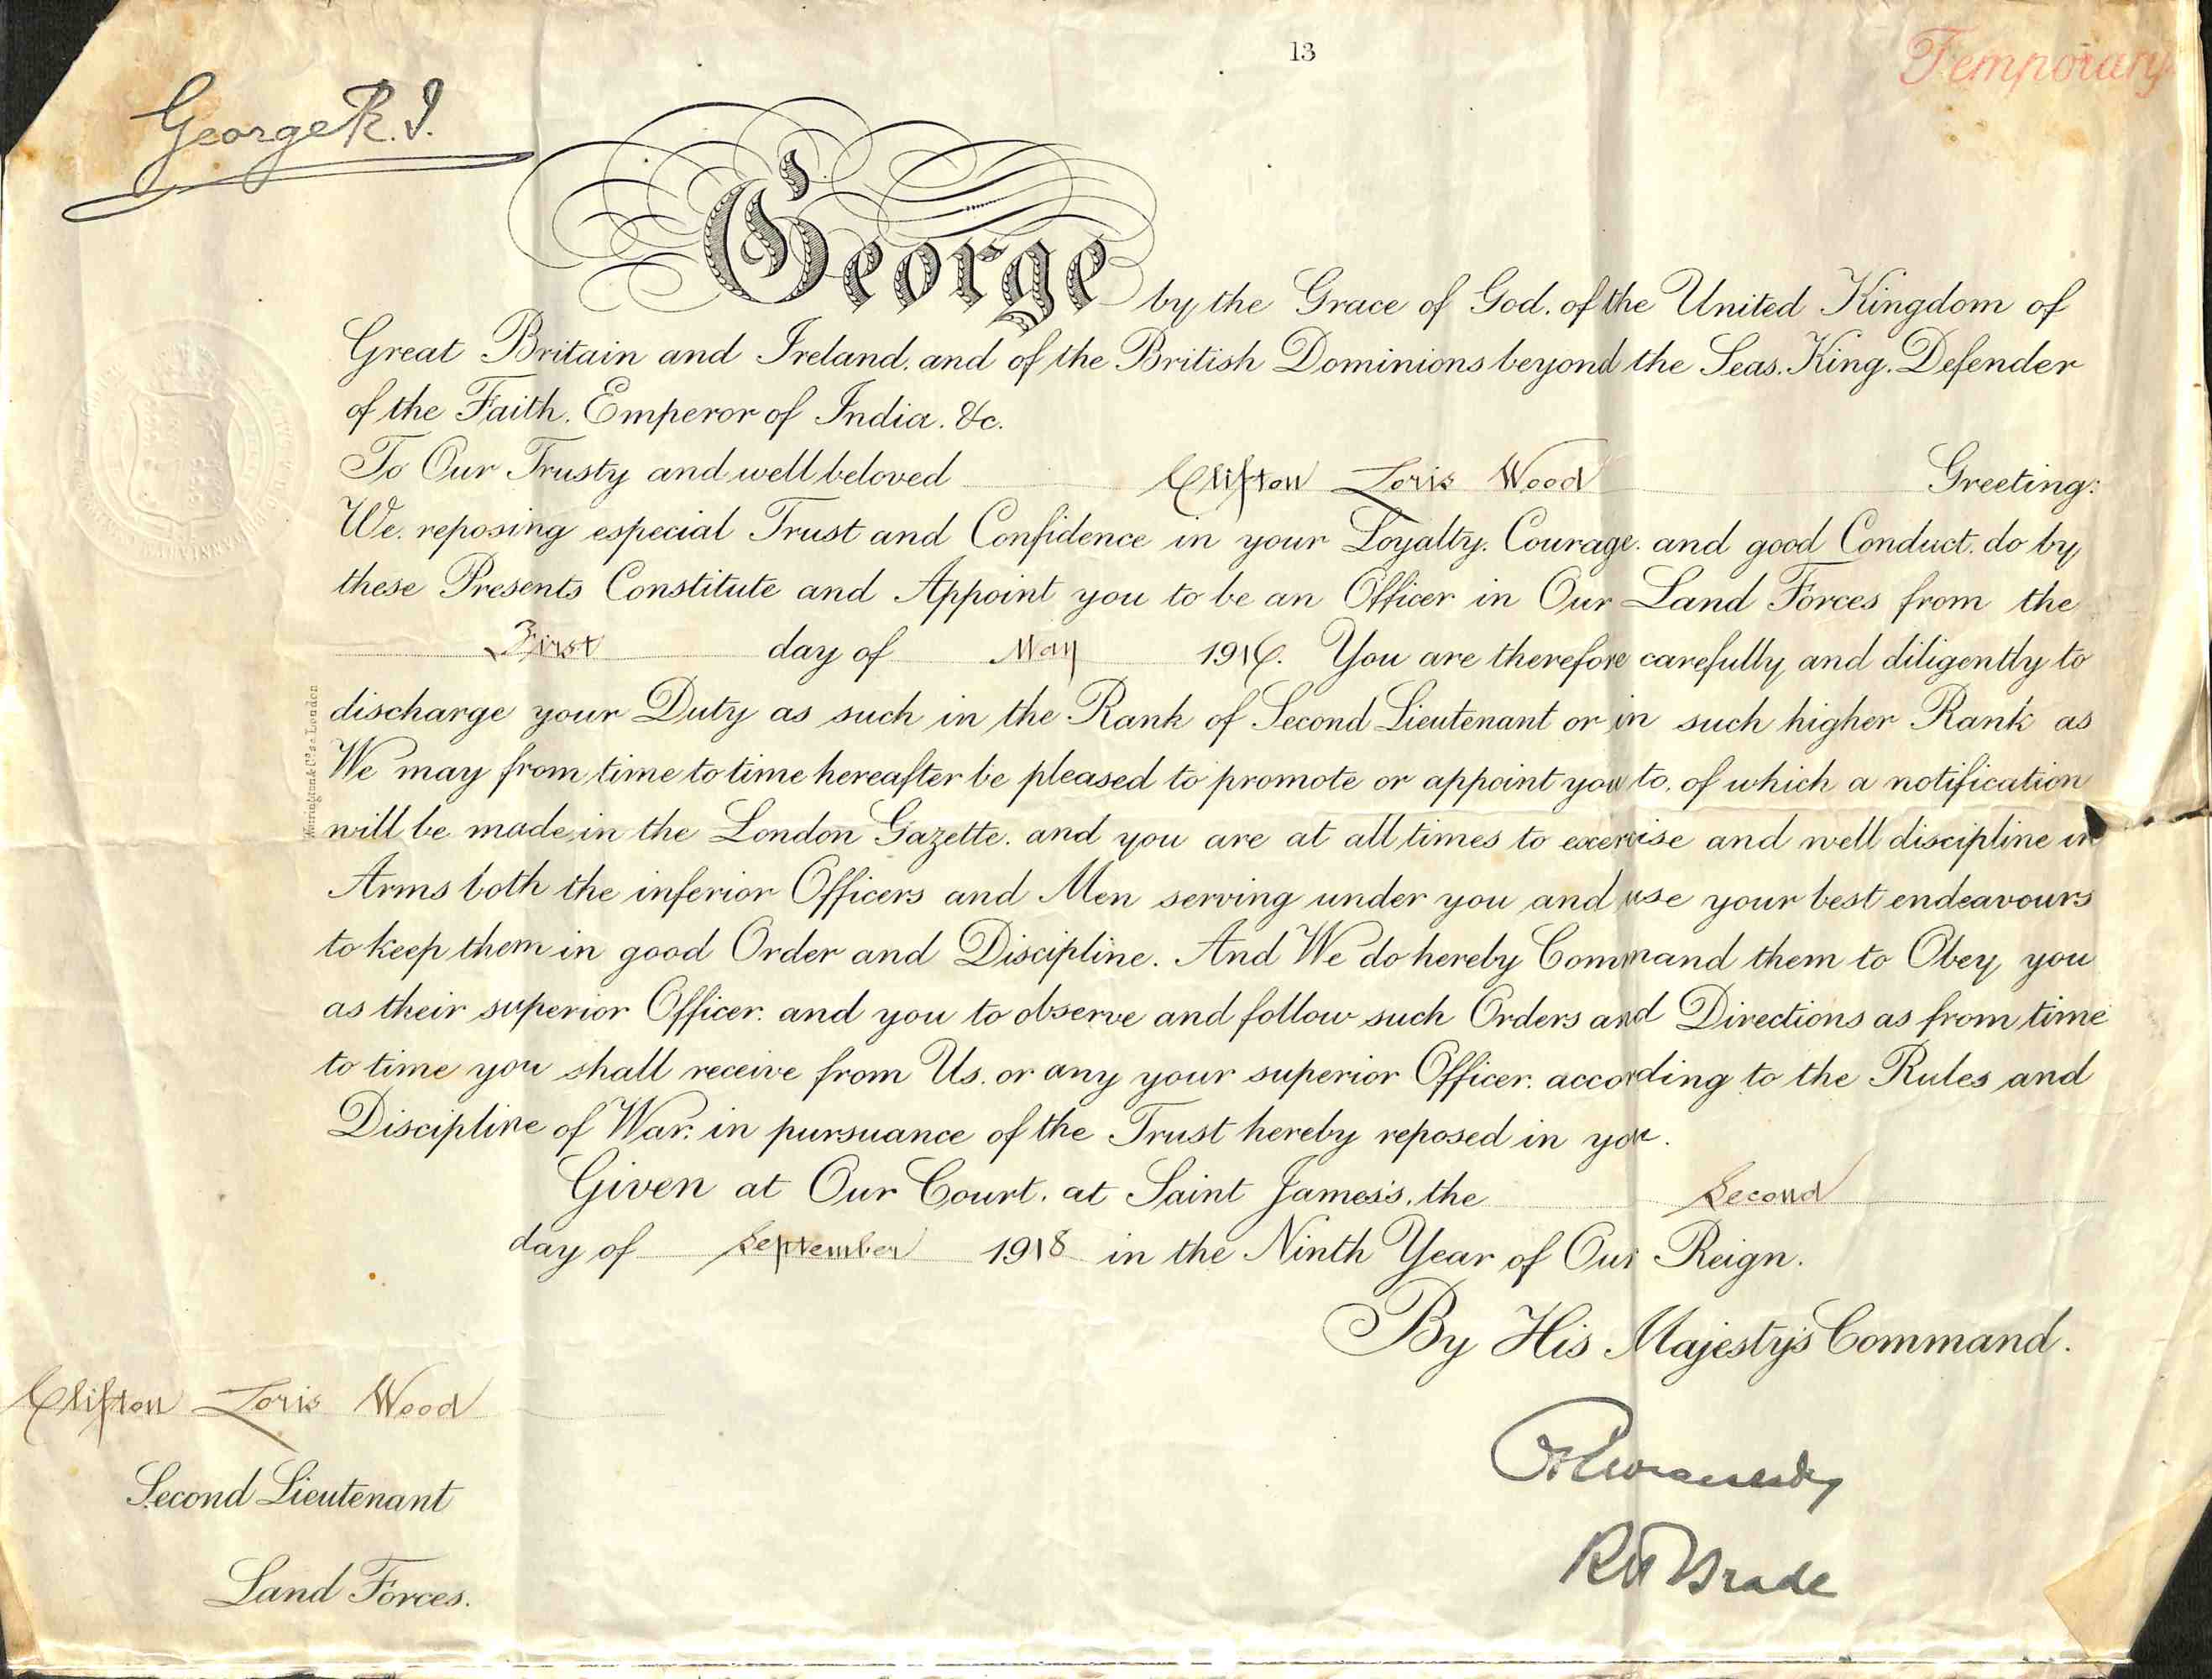 13
Temporary
George R.I.
George by the Grace of God, of the United Kingdom of
Great Britain and Ireland, and of the British Dominions beyond the Seas, King, Defender
of the Faith, Emperor of India, &c.
To Our Trusty and well beloved Clifton Loris Wood Greeting:
We, reposing especial Trust and Confidence in your Loyalty, Courage, and good Conduct, do by
these Presents Constitute and Appoint you to be an Officer in Our Land Forces from the
First day of May 1916. You are therefore carefully and diligently to
discharge your Duty as such in the Rank of Second Lieutenant or in such higher Rank as
We may from time to time hereafter be pleased to promote or appoint you to, of which a notification
will be made in the London Gazette, and you are at all times to exercise and well discipline in
Arms both the inferior Officers and Men serving under you and use your best endeavours
to keep them in good Order and Discipline. And We do hereby Command them to Obey you
as their superior Officer, and you to observe and follow such Orders and Directions as from time
to time you shall receive from Us, or any your superior Officer, according to the Rules and
Discipline of War, in pursuance of the Trust hereby reposed in you.
Given at Our Court, at Saint James's, the Second
day of September 1918 in the Ninth Year of Our Reign.
By His Majesty's Command.
Clifton Loris Wood
Second Lieutenant
Land Forces.
R H Brade
Harrison & Co. London